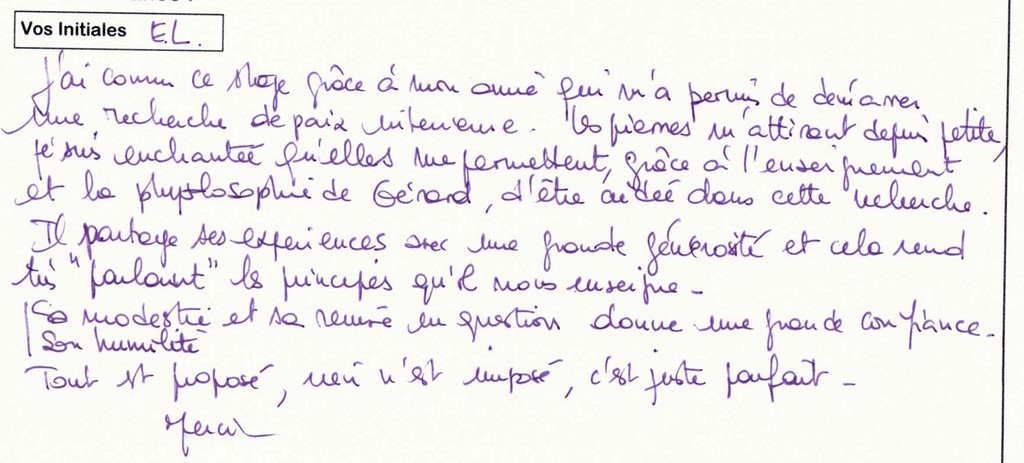 Vos Initiales E.L.
J'ai connu ce stage grâce à mon amie qui m'a permis de démarrer
une recherche de paix intérieure. Les pierres m'attirant depuis petite,
je suis enchantée qu'elles me permettent, grâce à l'enseignement
et la physlosophie de Gérard, d'être aidée dans cette recherche.
Il partage ses expériences avec une grande générosité et cela rend
très "parlant" les principes qu'il nous enseigne -
Sa modestie et sa remise en question donne une grande confiance -
Son humilité
Tout est proposé, rien n'est imposé, c'est juste parfait -
Merci